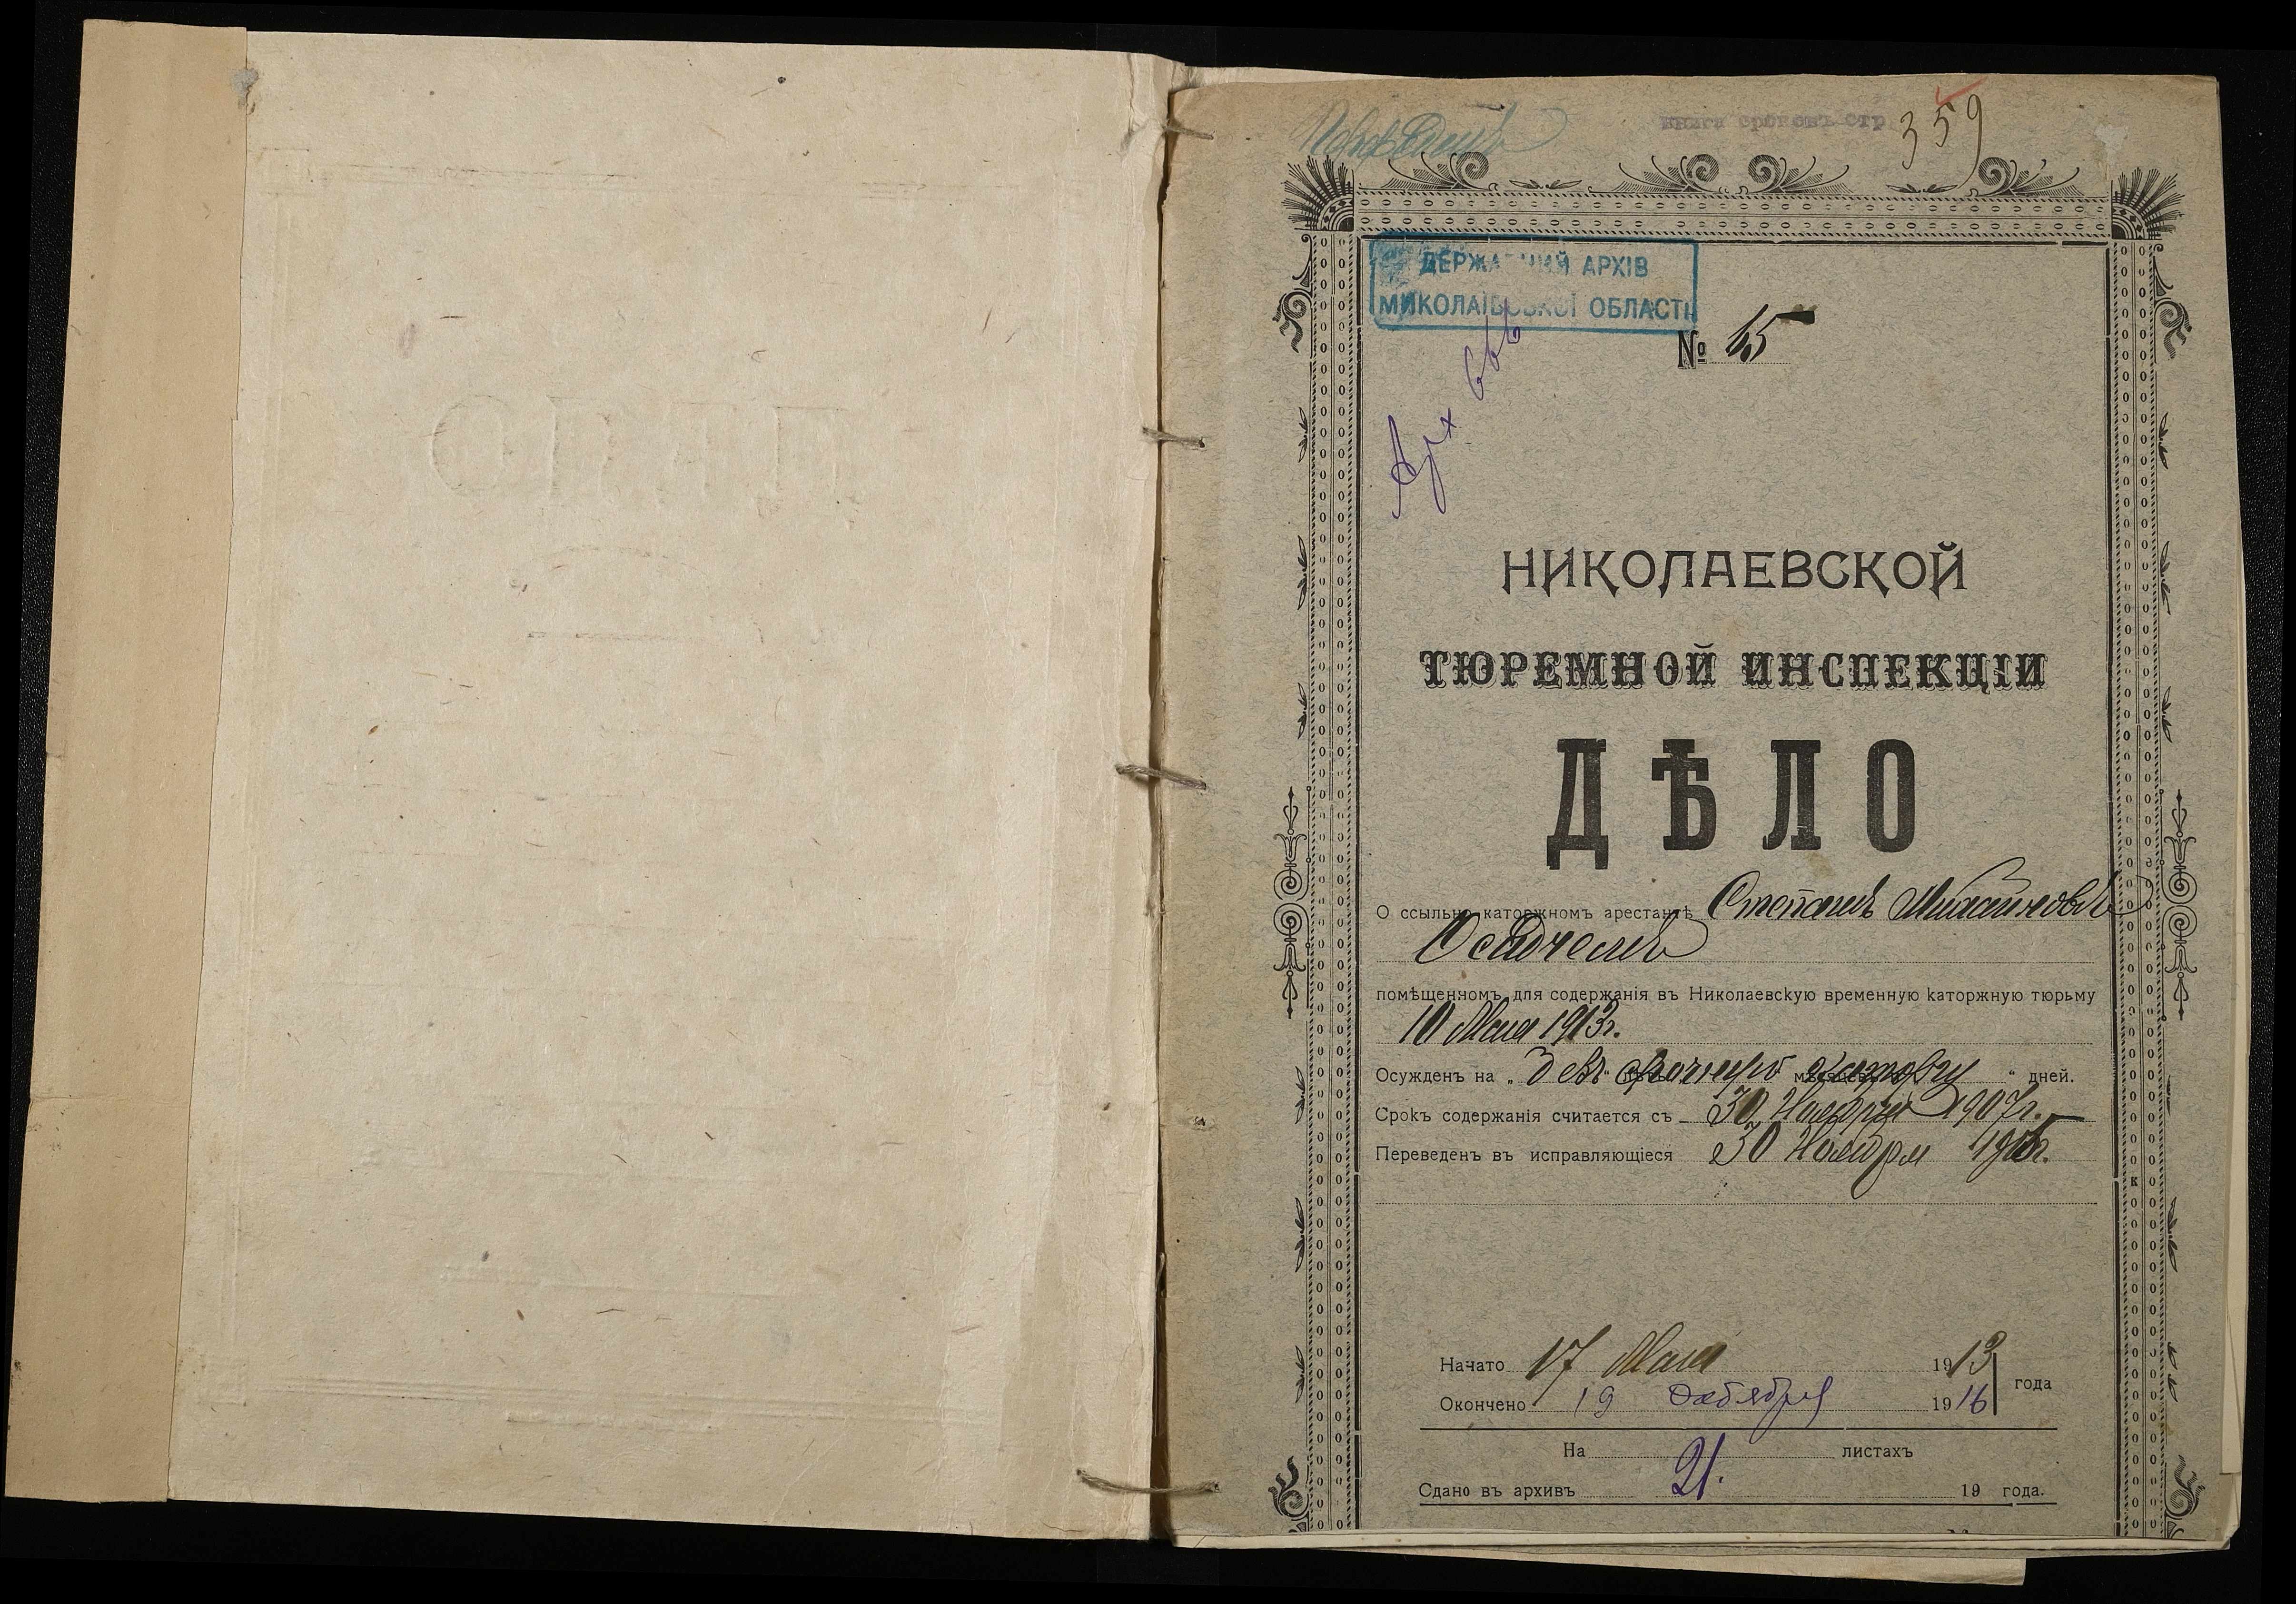 книга сроковъ стр 359
ДЕРЖАВНИЙ АРХІВ
МИКОЛАЇВСЬКОЇ ОБЛАСТІ
№ 65
Арх
НИКОЛАЕВСКОЙ
ТЮРЕМНОЙ ИНСПЕКЦІИ
ДѢЛО
О ссыльно-каторжномъ арестантѣ Степанѣ
Осадчемъ
помѣщенномъ для содержанія въ Николаевскую временную каторжную тюрьму
10 Мая 1913г.
Осужденъ на „ безъ срочную каторгу “ дней.
Срокъ содержанія считается съ 30 Ноября 1907г.
Переведенъ въ исправляющіеся 30 Ноября
Начато 17 Мая 1913 года
Окончено 19 декабря 1916
На 21. листахъ
Сдано въ архивъ 19 года.